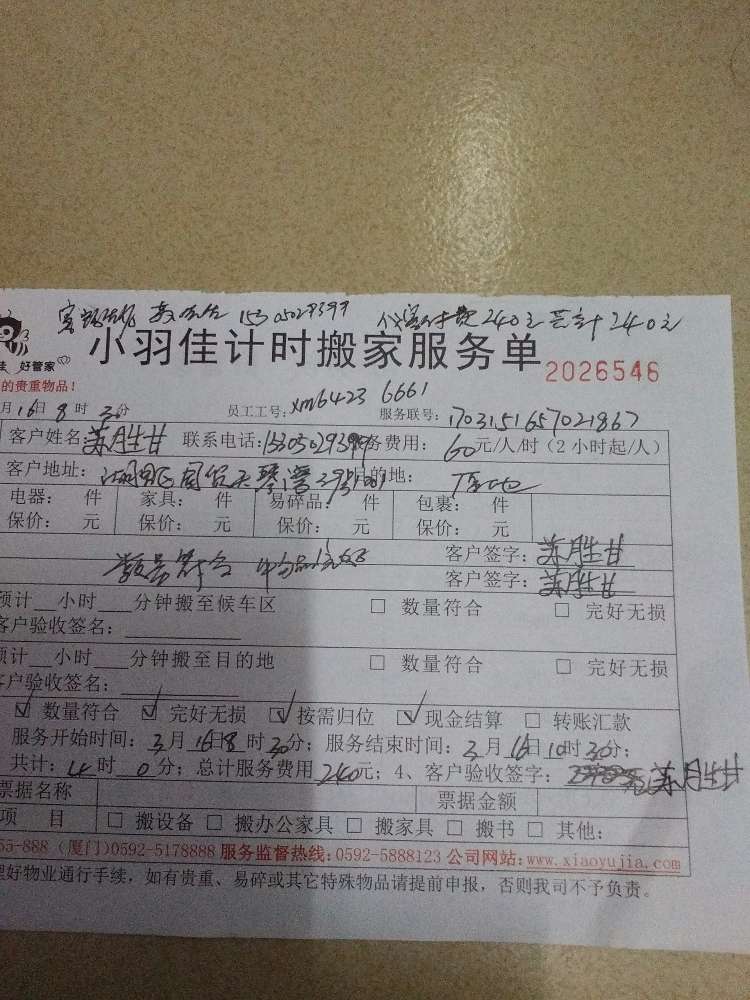 15305029399 240元 共计240元
佳 好管家
小羽佳计时搬家服务单 2026546
的贵重物品！
月16日8时30分 员工工号：xm6423 6661 服务联号：1703151657021867
客户姓名：苏胜甘 联系电话：15305029399 务费用：60元/人/时（2小时起/人）
客户地址： 目的地：
电器： 件 家具： 件 易碎品： 件 包裹： 件
保价： 元 保价： 元 保价： 元 保价： 元
数量符合 客户签字：苏胜甘
客户签字：苏胜甘
预计__小时___分钟搬至候车区 □ 数量符合 □ 完好无损
客户验收签名：
预计__小时___分钟搬至目的地 □ 数量符合 □ 完好无损
客户验收签名：
☑ 数量符合 ☑ 完好无损 ☑ 按需归位 ☑ 现金结算 □ 转账汇款
服务开始时间：3月16日8时30分；服务结束时间：3月16日10时30分；
共计：4时0分；总计服务费用240元；4、客户验收签字：苏胜甘
票据名称 票据金额
项 目 □ 搬设备 □ 搬办公家具 □ 搬家具 □ 搬书 □ 其他：
55-888（厦门）0592-5178888 服务监督热线：0592-5888123 公司网站：www.xiaoyujia.com
理好物业通行手续，如有贵重、易碎或其它特殊物品请提前申报，否则我司不予负责。